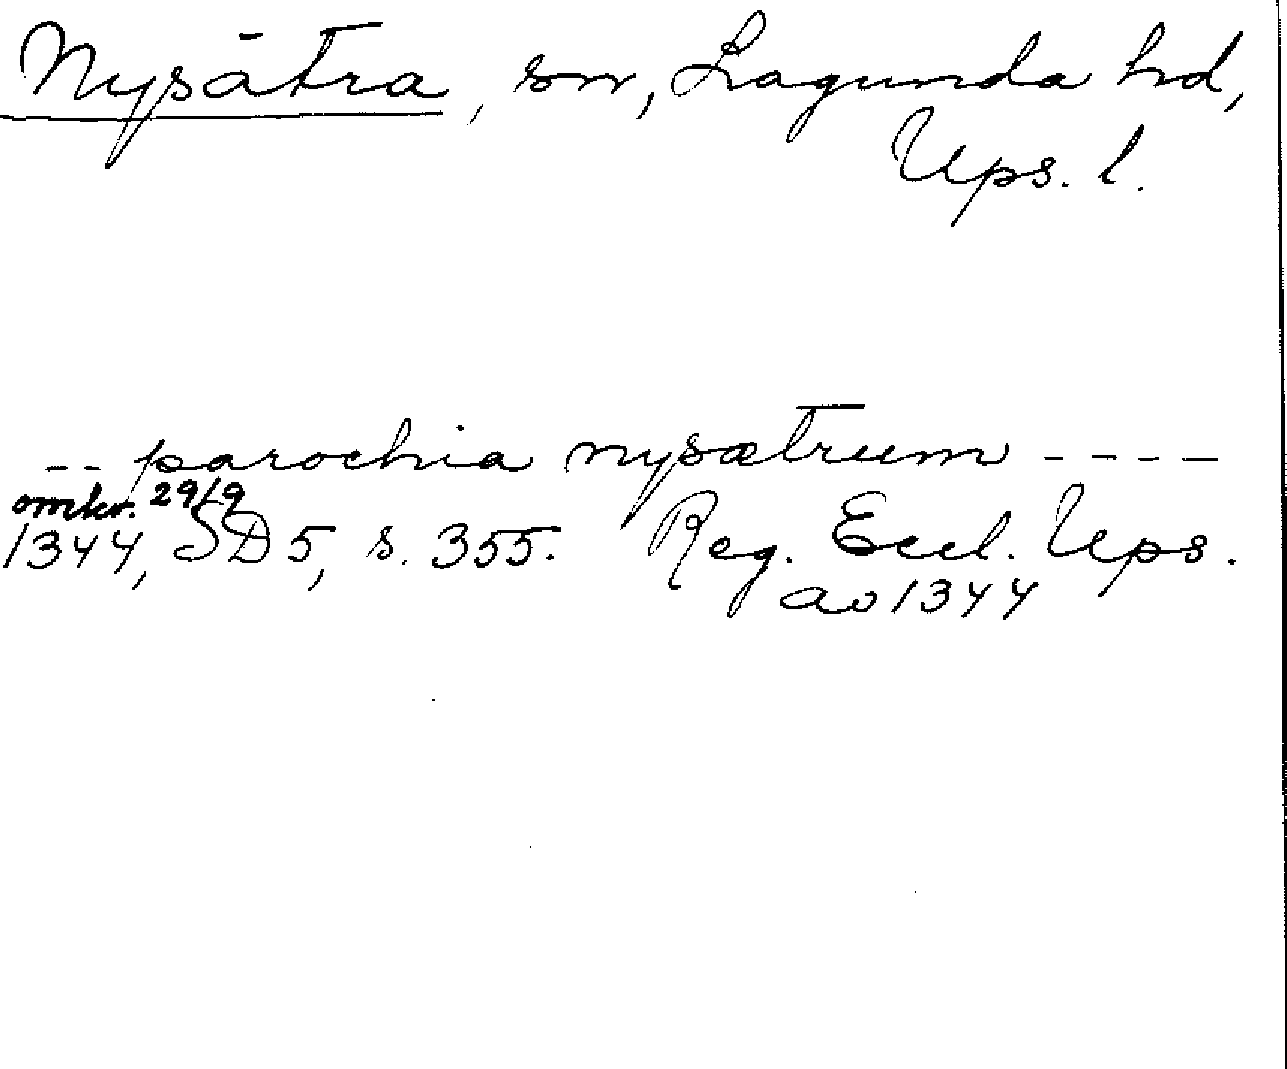 Nysätra, sn, Lagunda hd,
Ups. l.
-- parochia nysætrum ----
omkr. 29/9
1344, SD 5, s. 355. Reg. Eccl. Ups.
ao 1344